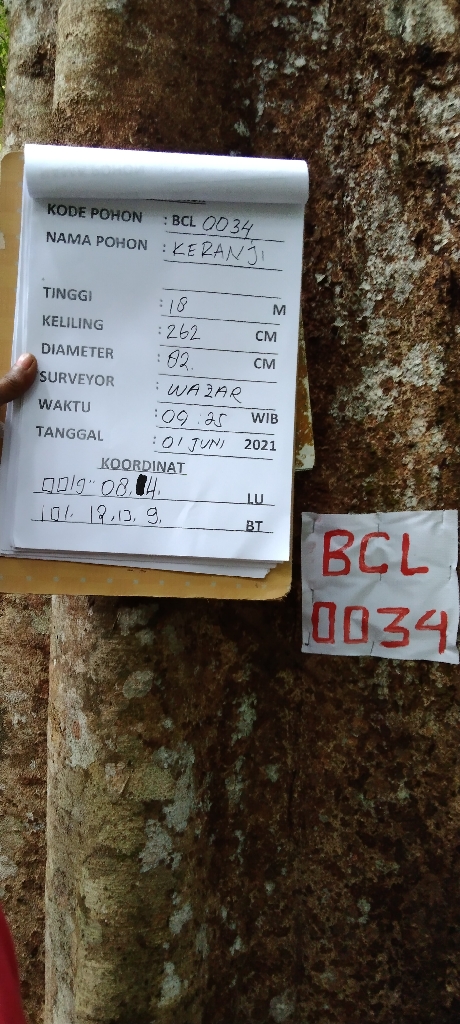 KODE POHON : BCL 0034
NAMA POHON : KERANJI
TINGGI : 18 M
KELILING : 262 CM
DIAMETER : 82 CM
SURVEYOR : WAZAR
WAKTU : 09:25 WIB
TANGGAL : 01 JUNI 2021
KOORDINAT
08. 4. LU
101. 9. BT
BCL
0034